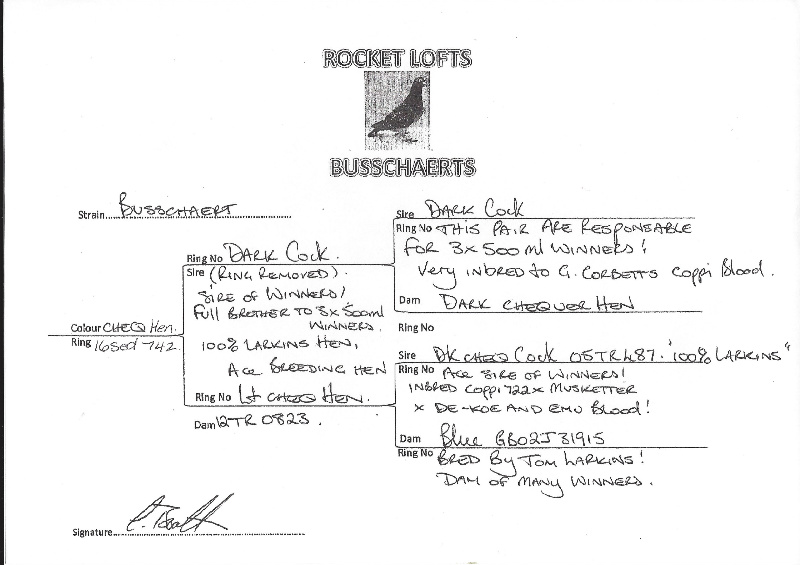 ROCKET LOFTS
BUSSCHAERTS
Strain BUSSCHAERT
Sire DARK COCK
Ring No THIS PAIR ARE RESPONSABLE
FOR 3x 500 ml WINNERS!
Very INBRED to G. CORBETTS Coppi Blood.
Dam DARK CHEQUER HEN
Ring No
Ring No DARK COCK.
Sire (RING REMOVED).
SIRE OF WINNERS!
Full BROTHER TO 3x 500ml
WINNERS.
Colour CHEQ Hen.
Ring 16Sed 742
100% LARKINS HEN,
Ace BREEDING HEN
Ring No Lt CHEQ HEN.
Dam 12TR 0823.
Sire DK CHEQ COCK 05TR487. "100% LARKINS"
Ring No Ace SIRE OF WINNERS!
INBRED COPPI 722 x MUSKETTER
x DE-KOE AND EMU Blood!
Dam Blue GB02J31915
Ring No BRED By TOM LARKINS!
DAM OF MANY WINNERS.
Signature